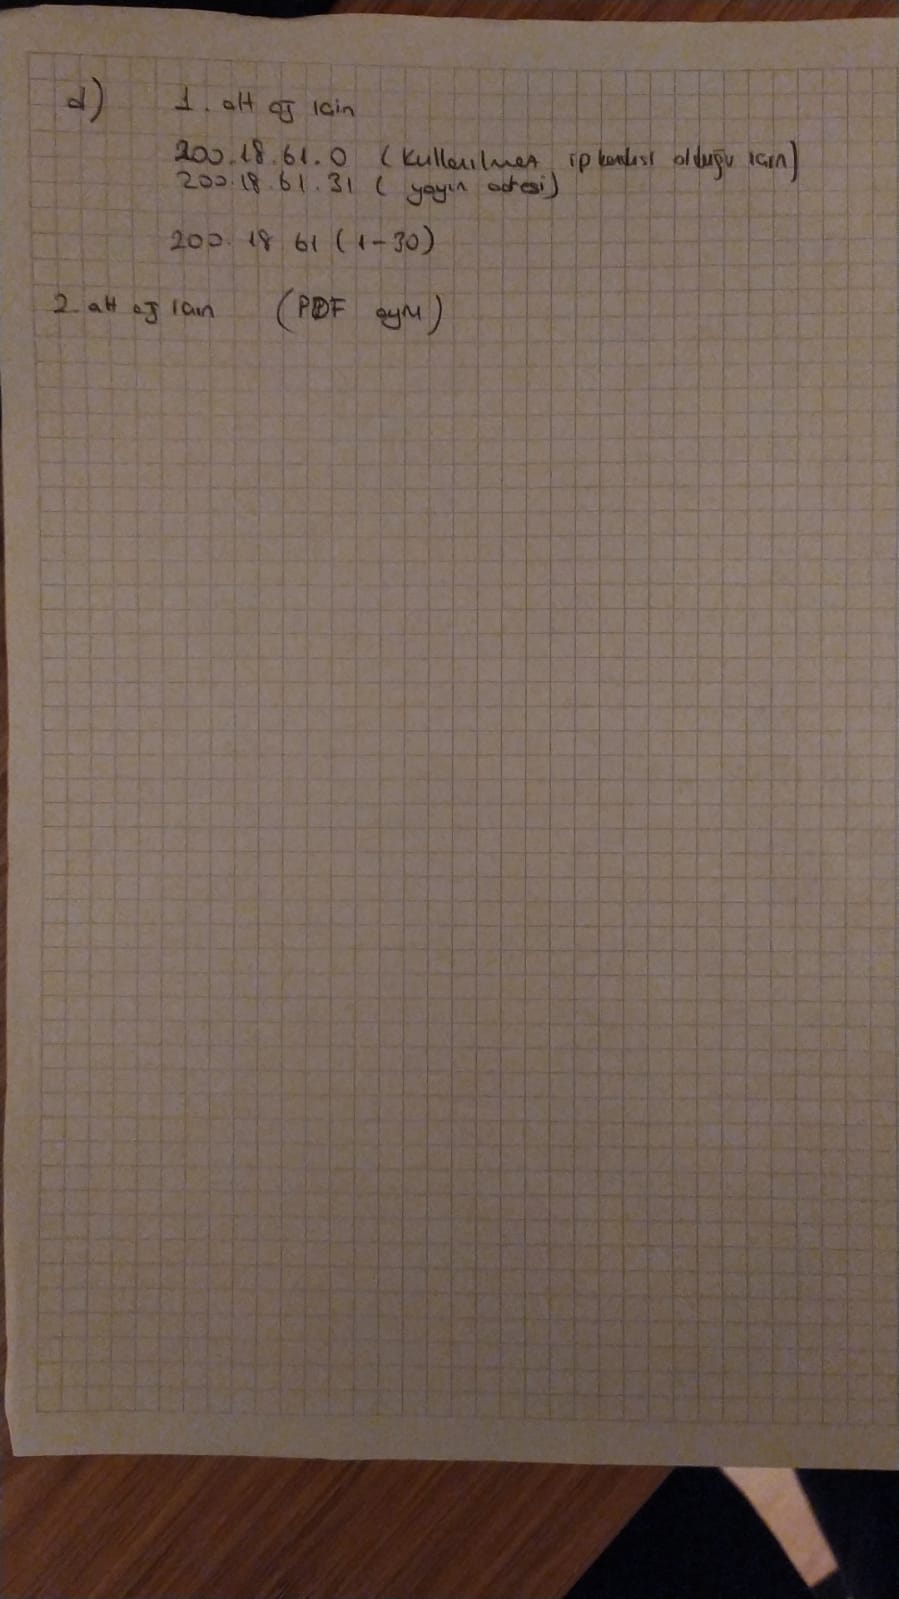 d) 1. alt ağ için
200.18.61.0 (kullanılmaz ip kendisi olduğu için)
200.18.61.31 (yayın adresi)
200.18 61 (1-30)
2. alt ağ için (PDF aynı)